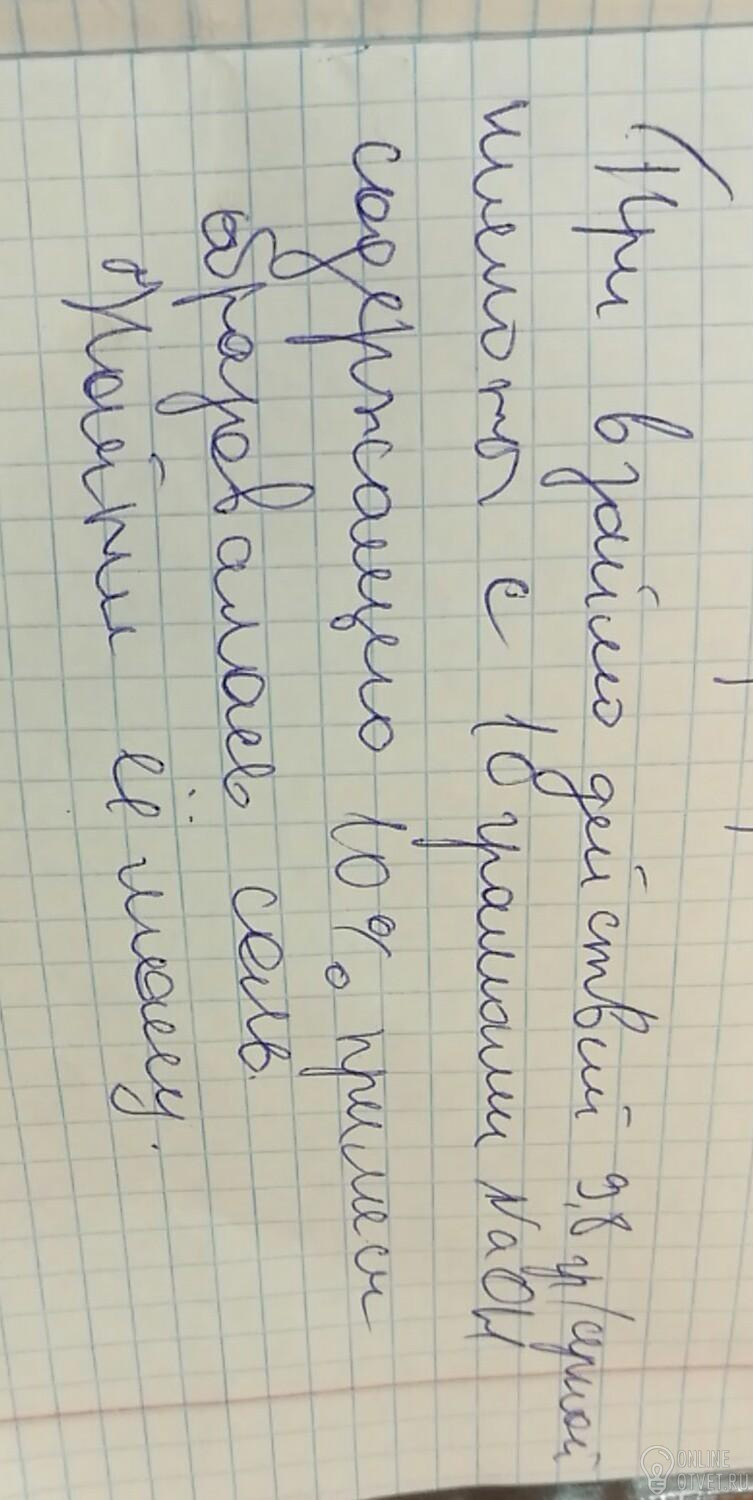 При взаимодействии 9,8 гр/серной
кислоты с 10 граммами NaOH
содержащего 10% примеси
образовалась соль.
Найти её массу.
ONLINE
OTVET.RU